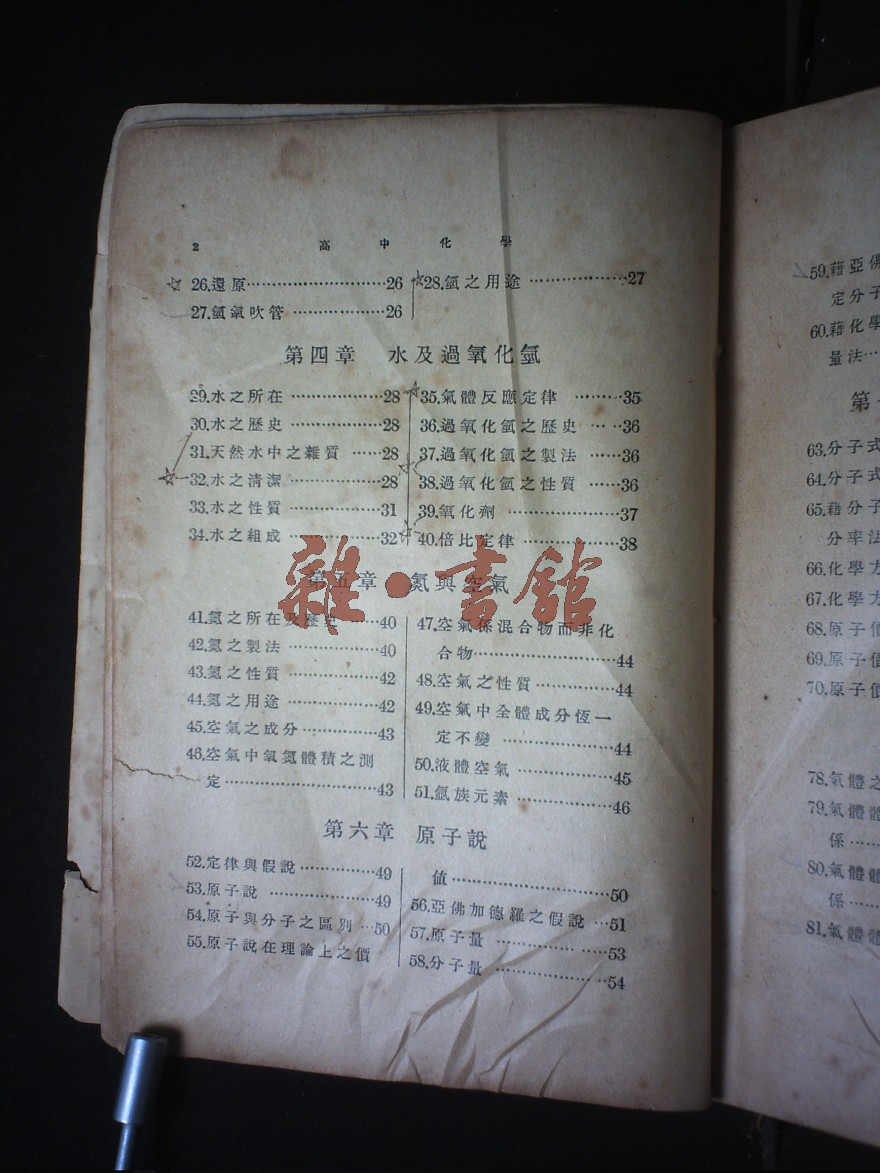 2 高中化學
26.還原 26
27.氫氧吹管 26
28.氫之用途 27
第四章 水及過氧化氫
29.水之所在 28
30.水之歷史 28
31.天然水中之雜質 28
32.水之清潔 28
33.水之性質 31
34.水之組成 32
35.氣體反應定律 35
36.過氧化氫之歷史 36
37.過氧化氫之製法 36
38.過氧化氫之性質 36
39.氧化劑 37
40.倍比定律 38
雜·書舘
第五章 氮與空氣
41.氮之所在及歷史 40
42.氮之製法 40
43.氮之性質 42
44.氮之用途 42
45.空氣之成分 43
46.空氣中氧氮體積之測
定 43
47.空氣係混合物而非化
合物 44
48.空氣之性質 44
49.空氣中全體成分恆一
定不變 44
50.液體空氣 45
51.氬族元素 46
第六章 原子說
52.定律與假說 49
53.原子說 49
54.原子與分子之區別 50
55.原子說在理論上之價
值 50
56.亞佛加德羅之假說 51
57.原子量 53
58.分子量 54
59.藉亞佛
定分子
60.藉化學
量法
第
63.分子式
64.分子式
65.藉分子
分率法
66.化學方
67.化學方
68.原子價
69.原子價
70.原子價
78.氣體之
79.氣體體
係
80.氣體體
係
81.氣體體